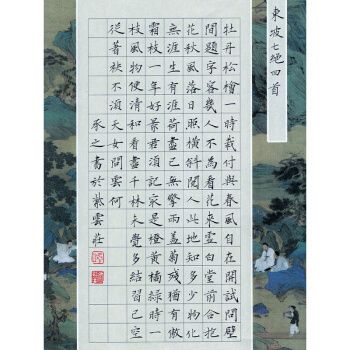 東坡七絕四首
牡丹松檜一時栽付與春風自在開試問壁
間題字客幾人不為看花來虛白堂前合抱
花秋風落日照橫斜閱人此地知多少物化
無涯生有涯荷盡已無擎雨蓋菊殘猶有傲
霜枝一年好景君須記冣是橙黃橘綠時一
枝風物便清和看盡千林未覺多結習已空
從著袂不須天女問雲何
承之書於紫雲莊